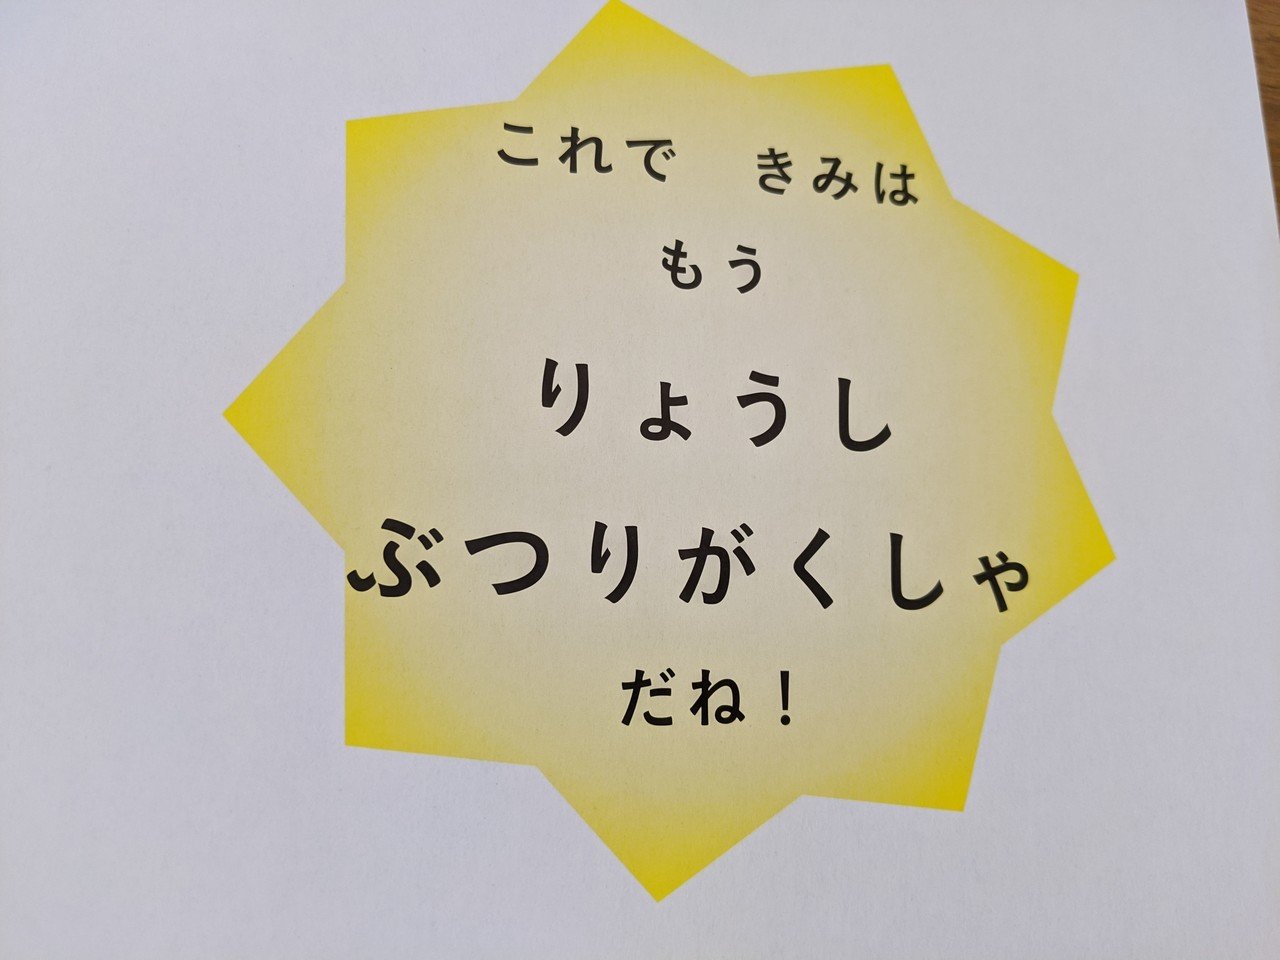 これで　きみは
もう
りょうし
ぶつりがくしゃ
だね！